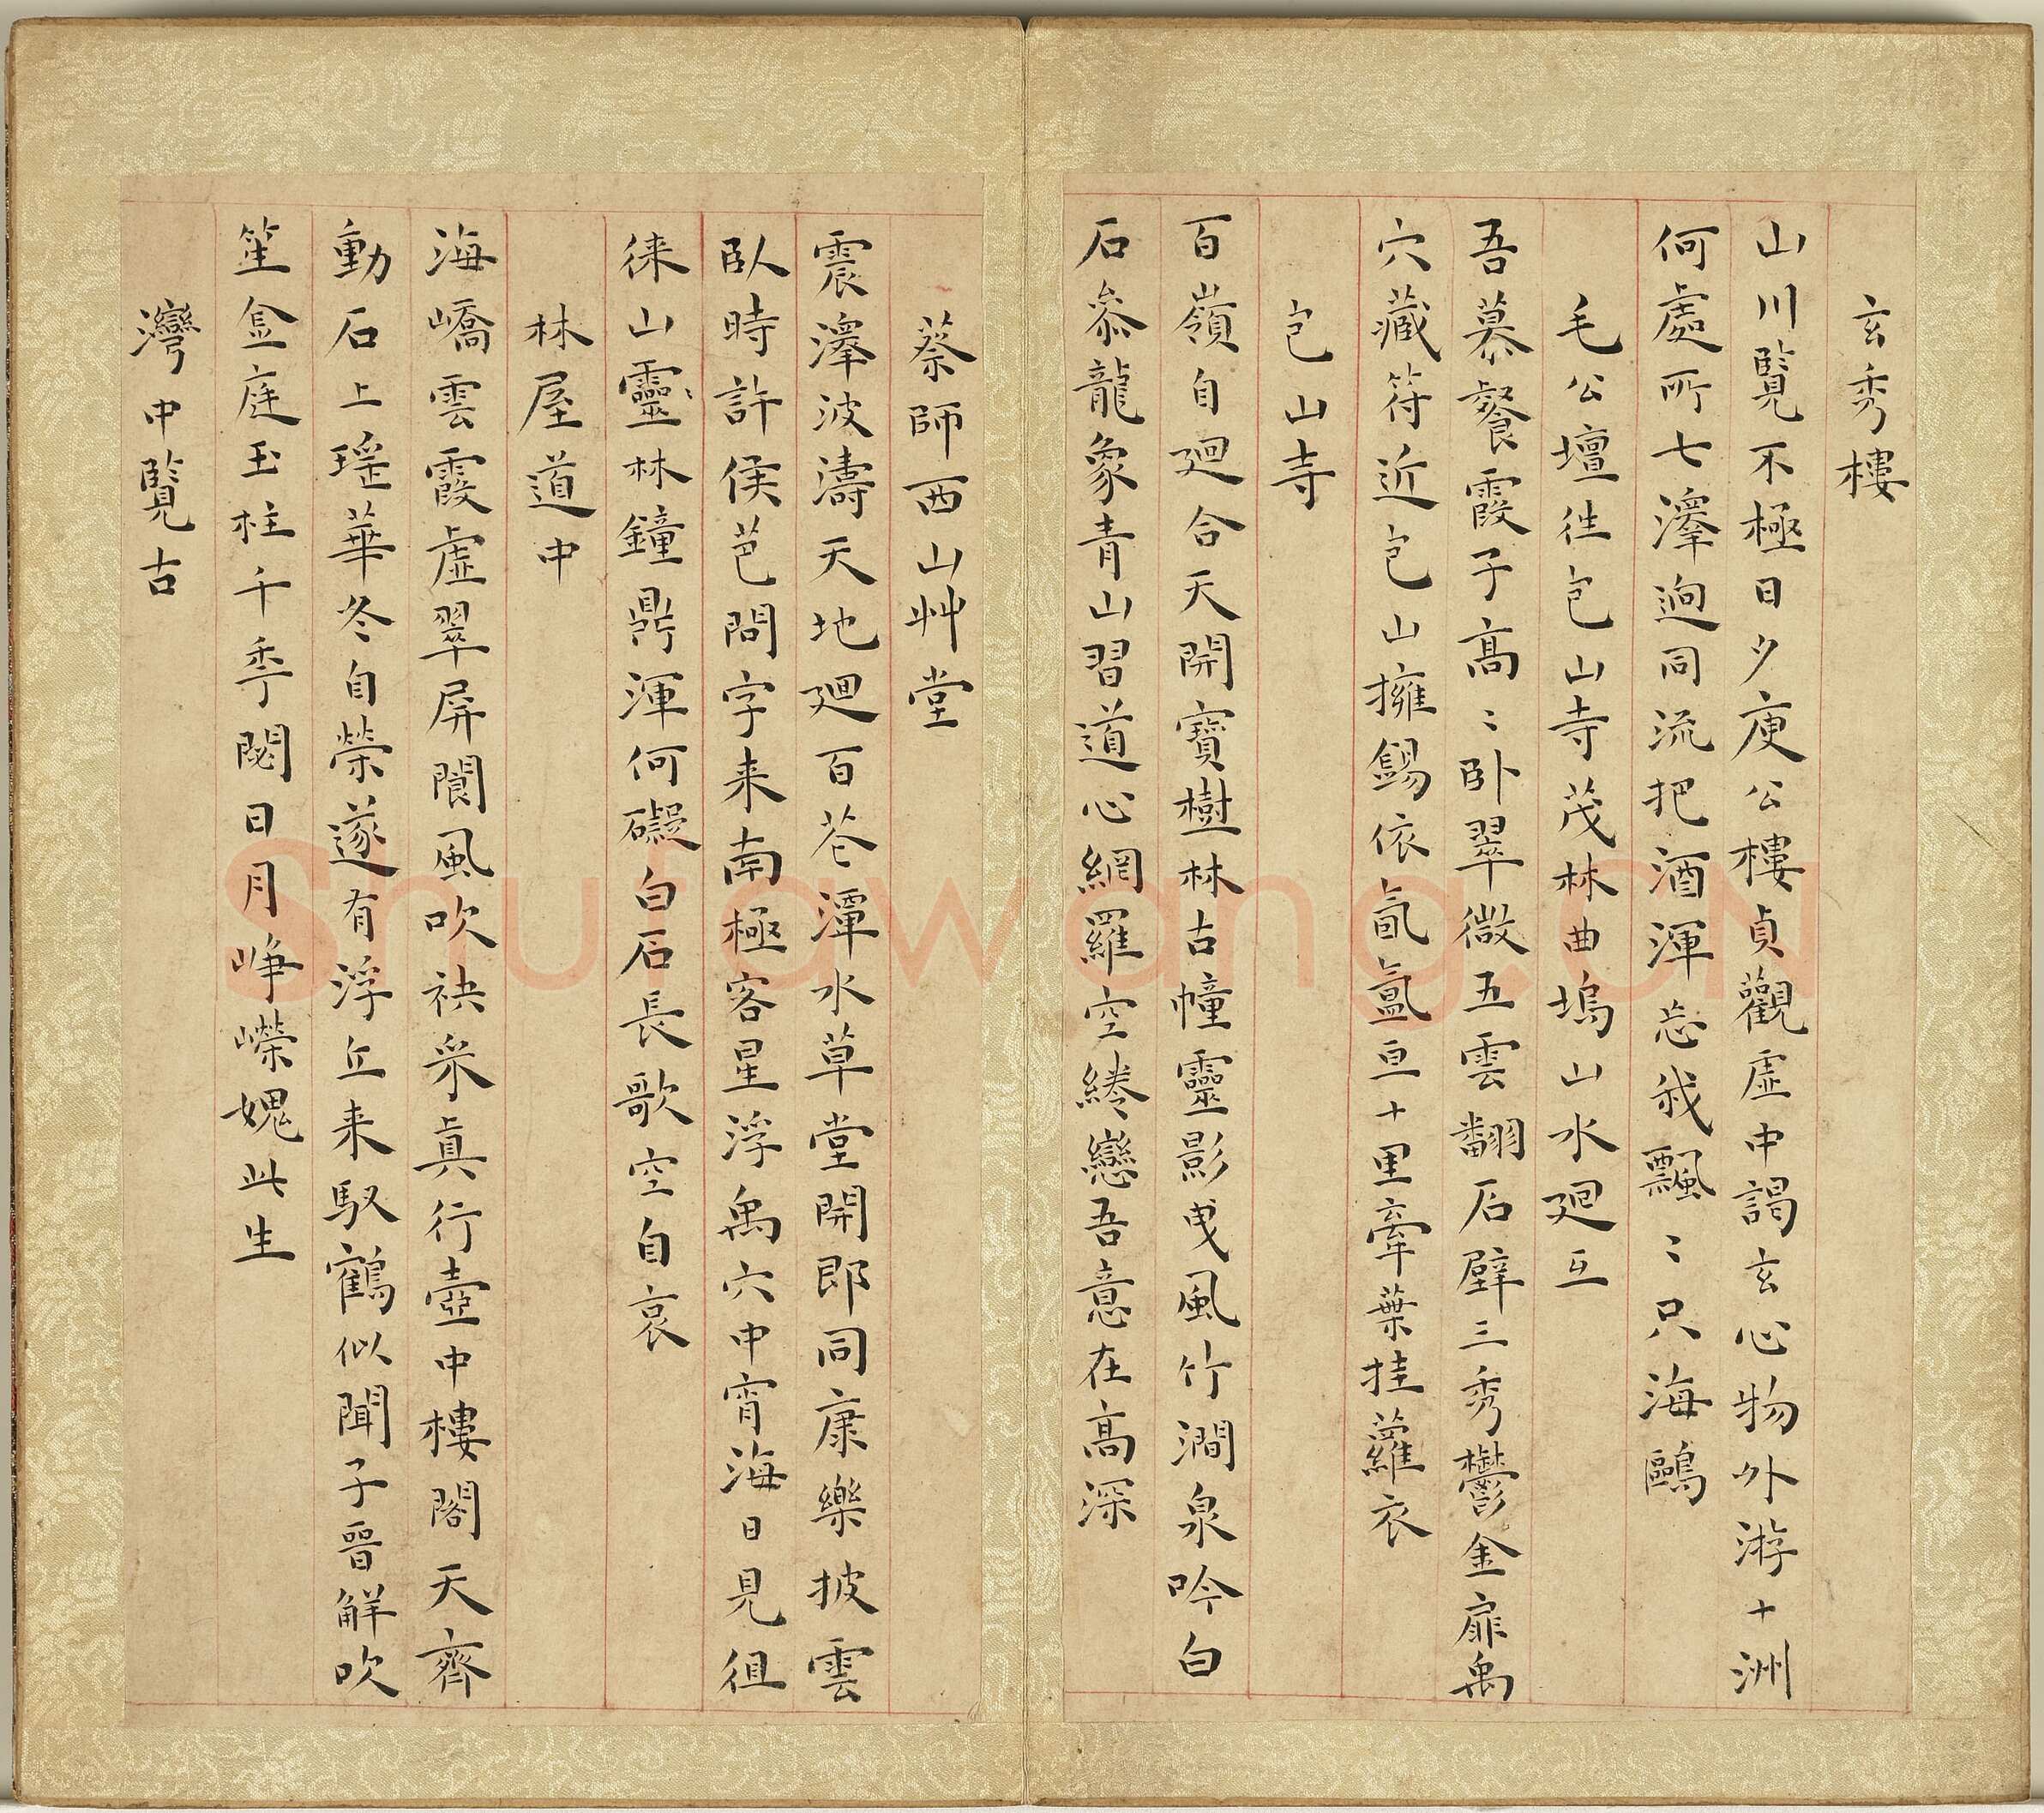 玄秀樓
山川覽不極日夕庾公樓貞觀虛中謁玄心物外游十洲
何處所七澤迥同流把酒渾忘我飄〻只海鷗
毛公壇往包山寺茂林曲塢山水廻互
吾慕餐霞子高〻卧翠微五雲翻石壁三秀鬱金扉禹
穴藏符近包山擁錫依氤氳亘十里牽葉挂蘿衣
包山寺
百嶺自廻合天開寶樹林古幢靈影曳風竹澗泉吟白
石叅龍象青山習道心網羅空綣戀吾意在高深
蔡師西山艸堂
震澤波濤天地廻百花潭水草堂開郎同康樂披雲
臥時許侯芭問字来南極客星浮禹穴中宵海日見徂
徠山靈〻林鐘鼎渾何礙白石長歌空自哀
林屋道中
海嶠雲霞虛翠屏閬風吹袂采真行壺中樓閣天齊
動石上瑤華冬自榮遂有浮丘来馭鶴似聞子晉解吹
笙金庭玉柱千秊閟日月崢嶸媿此生
灣中覽古
Shufawang.CN